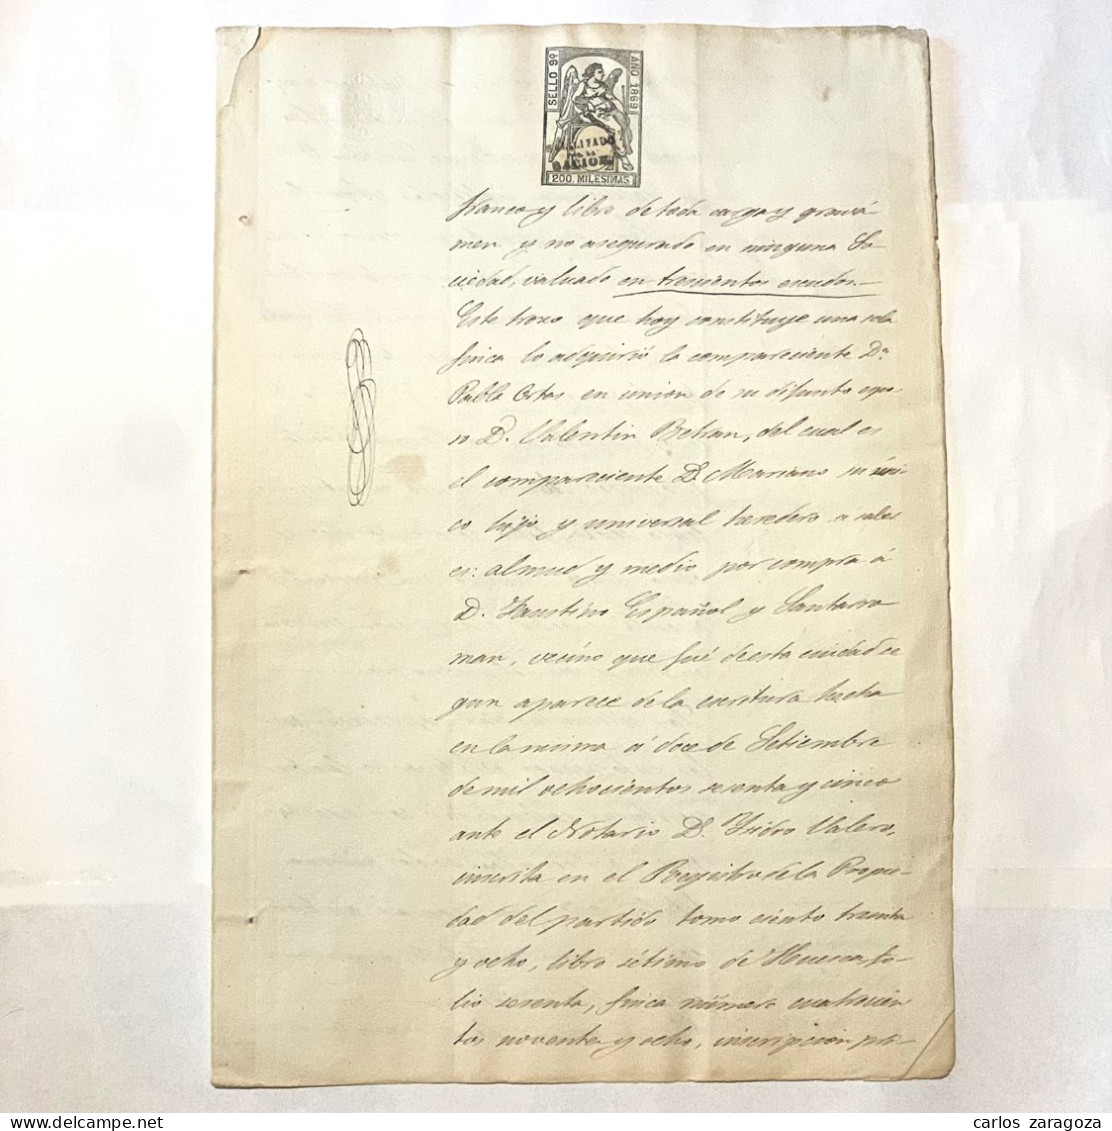 SELLO 9º
AÑO 1869
HABILITADO
POR LA
NACION.
200. MILESIMAS
franco y libre de toda carga y gravá
men y no asegurado en ninguna So
ciedad, valuado en trescientos escudos.—
Este trozo que hoy constituye una sola
finca lo adquirió la compareciente Dª
Pabla Ortas en union de su difunto espo
so D. Valentin Betran, del cual es
el compareciente D. Mariano su úni
co hijo y universal heredero a saber
es: almud y medio por compra á
D. Faustino Español y Santarro
man, vecino que fué de esta ciudad se
gun aparece de la escritura hecha
en la misma á doce de Setiembre
de mil ochocientos sesenta y cinco
ante el Notario D. Ysidro Valero,
inscrita en el Registro de la Propie-
dad del partido tomo ciento treinta
y ocho, libro sétimo de Huesca fo-
lio sesenta, finca número cuatrocien
tos noventa y ocho, inscripcion pri-
carlos zaragoza